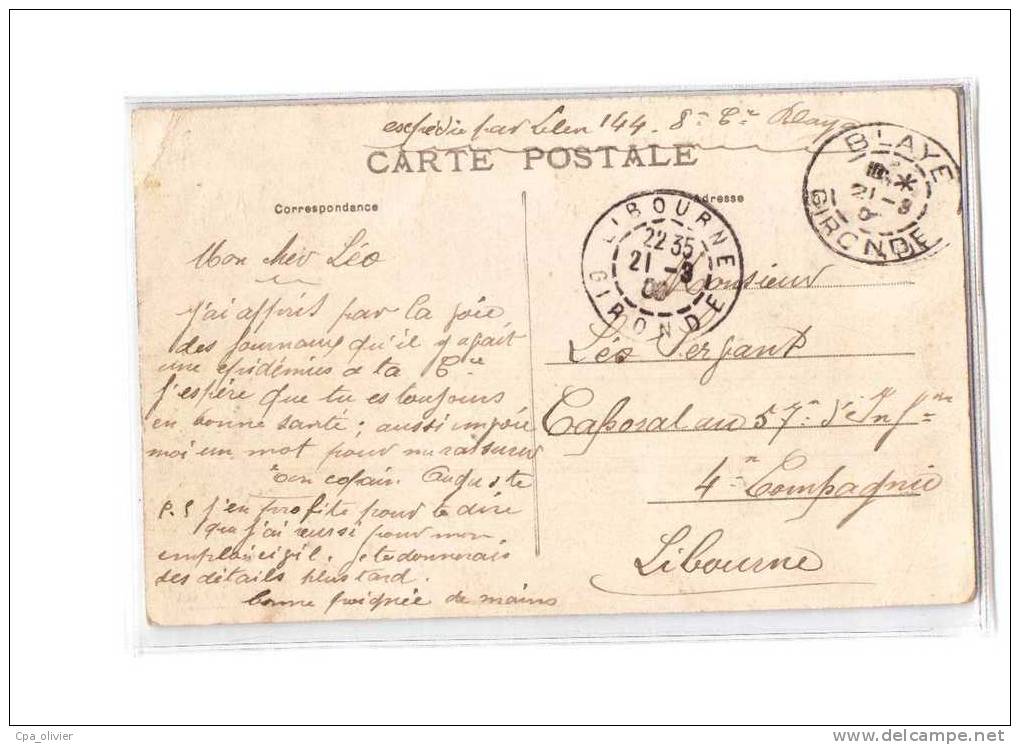 expédié par Lelen 144. 8e Cie Blaye
CARTE POSTALE
Correspondance
Adresse
BLAYE
21 - 3
GIRONDE
LIBOURNE
22 35
21 - 3
GIRONDE
Mon cher Léo
j'ai appris par la joie
des journaux qu'il y avait
une épidémies a ta Cie
j'espère que tu es toujours
en bonne santé ; aussi
moi un mot pour me rassurer
Ton copain Auguste
P.S j'en profite pour te dire
que j'ai reussi pour mon
emploi civil. je te donnerais
des détails plus tard.
bonne poignée de mains
Monsieur
Léo Sergant
Caporal au 57e d'Infie
4e Compagnie
Libourne
Cpa_olivier
www.delcampe.net